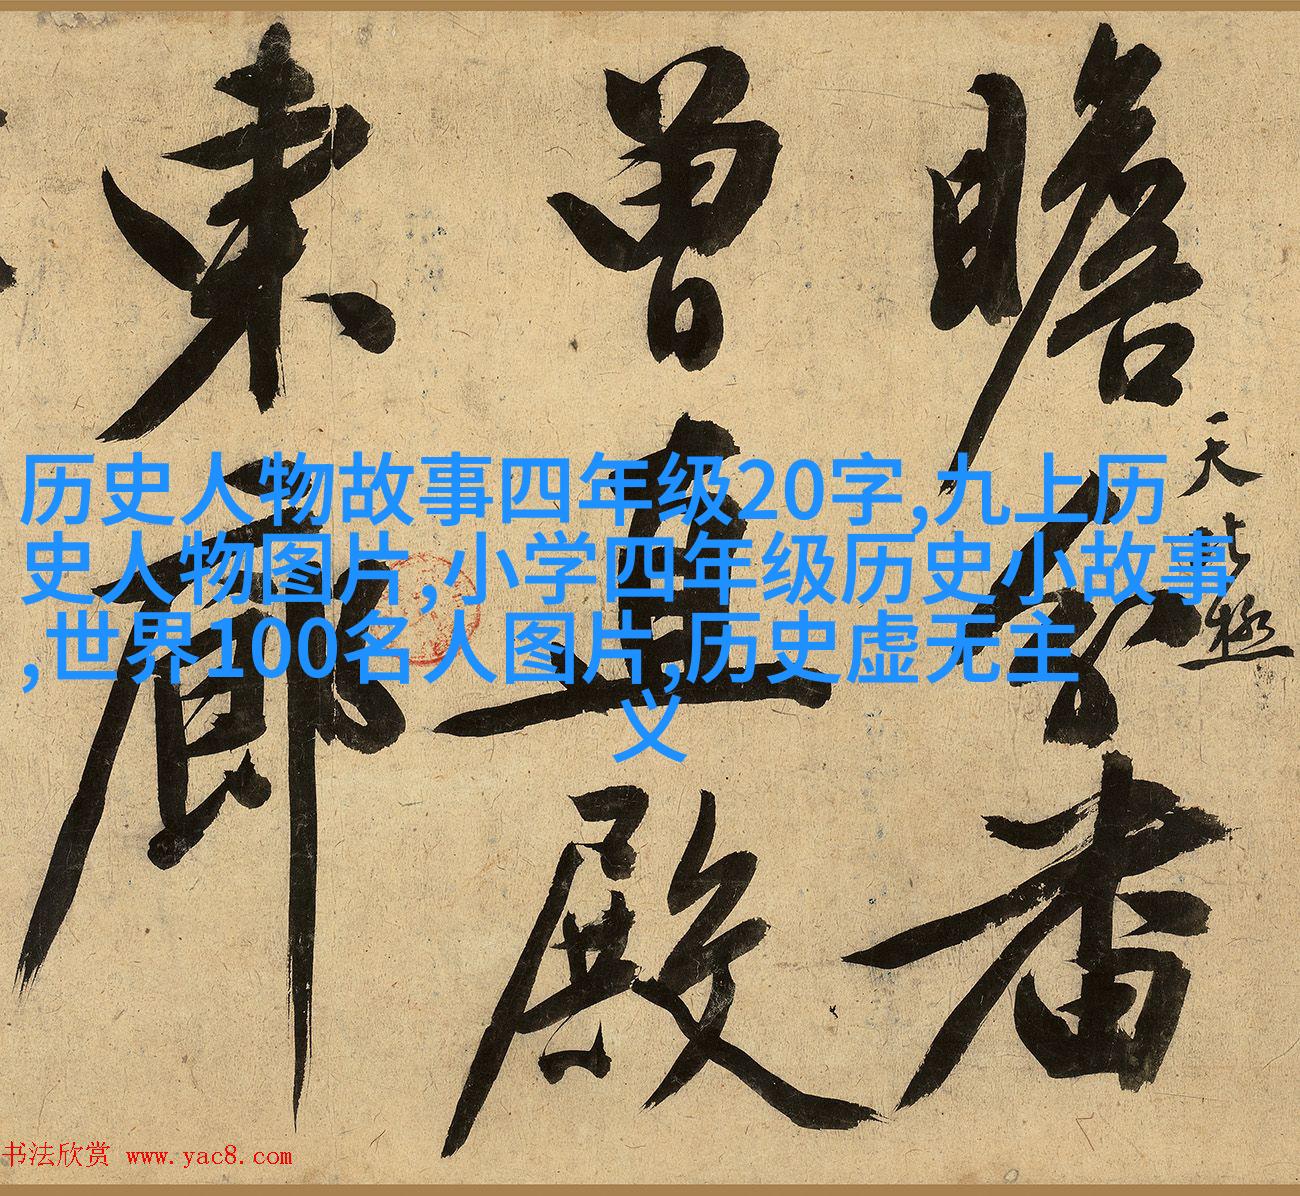 瞻
天
北極
曾直殿
東廊
历史人物故事四年级20字,九上历
史人物图片,小学四年级历史小故事
,世界100名人图片,历史虚无主
义
书法欣赏 www.yac8.com